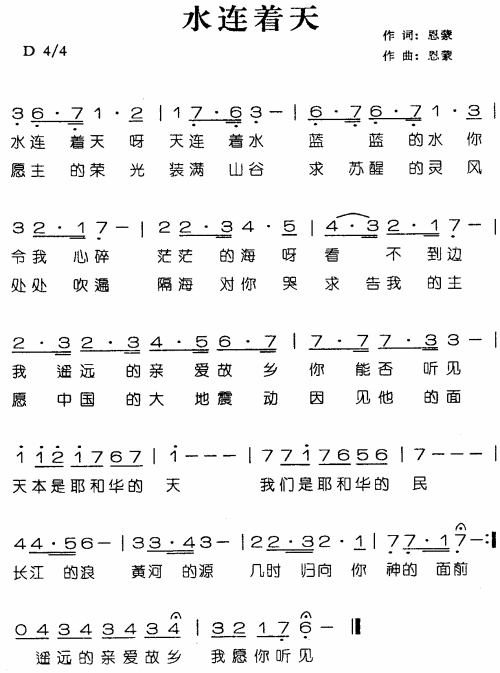 水连着天
作 词: 恩蒙
D 4/4
作 曲: 恩蒙
3 6 · 7 1 · 2 | 1 7 · 6 3 - | 6 · 7 6 · 7 1 · 3 |
水连 着天 呀 天连 着水 蓝 蓝 的水 你
愿主 的荣 光 装满 山谷 求 苏醒 的灵 风
3 2 · 1 7 - | 2 2 · 3 4 · 5 | 4 · 3 2 · 1 7 - |
令我 心碎 茫茫 的海 呀看 不 到边
处处 吹遍 隔海 对你 哭求 告我 的主
2 · 3 2 · 3 4 · 5 6 · 7 | 7 · 7 7 · 3 3 - |
我 遥远 的亲 爱故 乡 你 能否 听见
愿 中国 的大 地震 动 因 见他 的面
1 1 2 1 7 6 7 | 1 - - - | 7 7 1 7 6 5 6 | 7 - - - |
天本是耶和华的 天 我们是耶和华的 民
4 4 · 5 6 - | 3 3 · 4 3 - | 2 2 · 3 2 · 1 | 7 7 · 1 7 - :|
长江 的浪 黄河 的源 几时 归向 你 神的 面前
0 4 3 4 3 4 3 4 | 3 2 1 7 6 - ||
遥远的亲爱故乡 我愿你听见